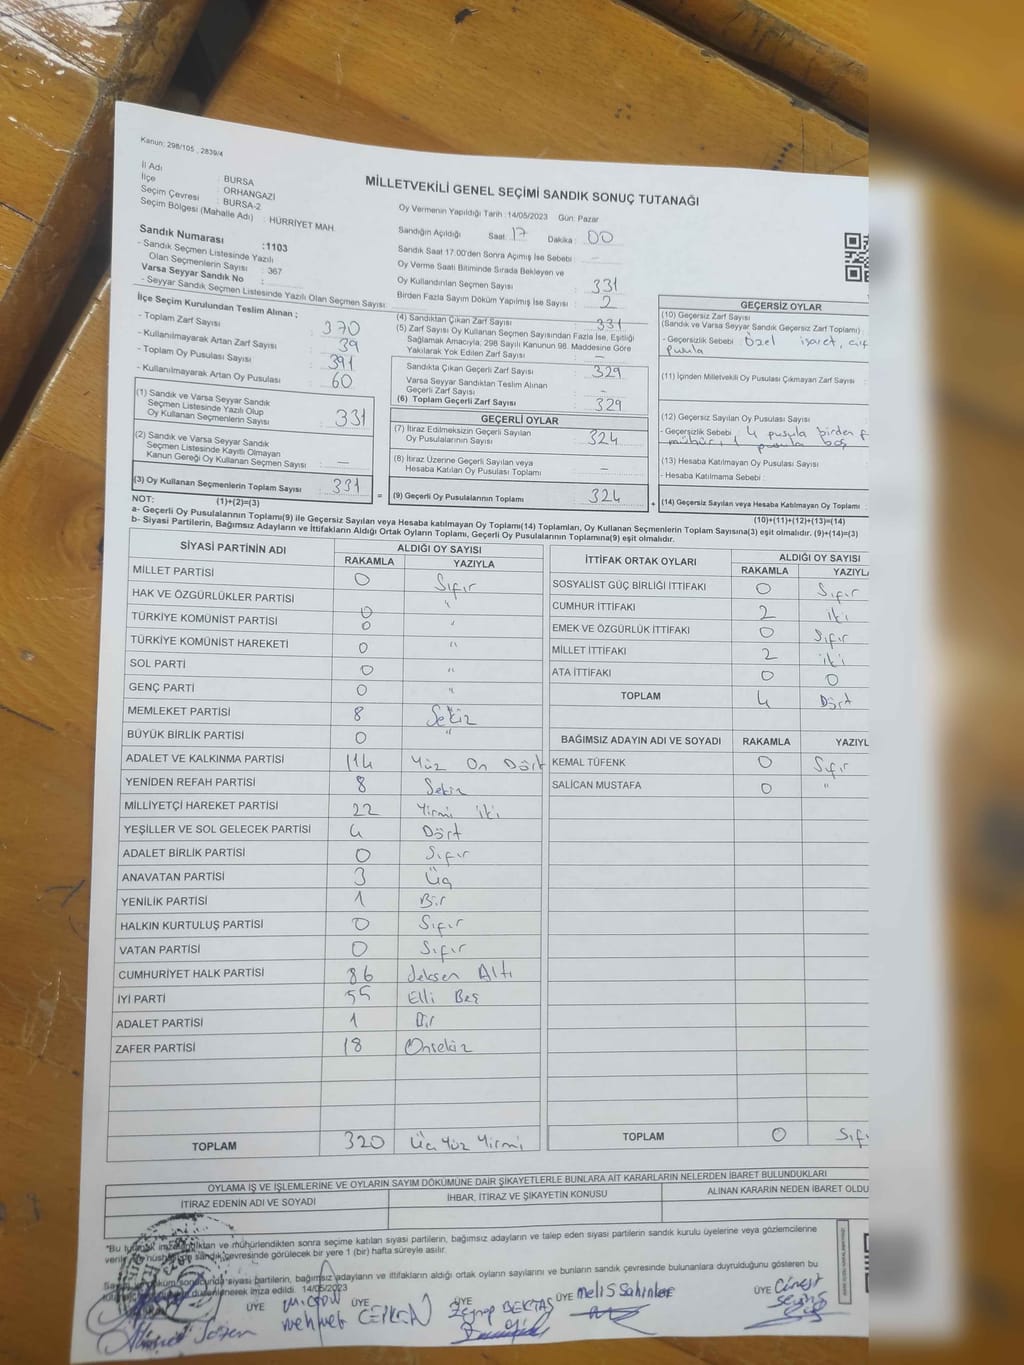 Kanun: 298/105 , 2839/4
İl Adı : BURSA
İlçe : ORHANGAZİ
Seçim Çevresi : BURSA-2
Seçim Bölgesi (Mahalle Adı) : HÜRRİYET MAH.
MİLLETVEKİLİ GENEL SEÇİMİ SANDIK SONUÇ TUTANAĞI
Oy Vermenin Yapıldığı Tarih : 14/05/2023 Gün: Pazar
Sandığın Açıldığı Saat: 17 Dakika : 00
Sandık Saat 17.00'den Sonra Açımış İse Sebebi : -
Oy Verme Saati Bitiminde Sırada Bekleyen ve
Oy Kullandırılan Seçmen Sayısı : 331
Birden Fazla Sayım Döküm Yapılmış İse Sayısı : 2
Sandık Numarası :1103
- Sandık Seçmen Listesinde Yazılı
Olan Seçmenlerin Sayısı : 367
Varsa Seyyar Sandık No :
- Seyyar Sandık Seçmen Listesinde Yazılı Olan Seçmen Sayısı:
İlçe Seçim Kurulundan Teslim Alınan ;
- Toplam Zarf Sayısı : 370
- Kullanılmayarak Artan Zarf Sayısı : 39
- Toplam Oy Pusulası Sayısı : 391
- Kullanılmayarak Artan Oy Pusulası : 60
(1) Sandık ve Varsa Seyyar Sandık
Seçmen Listesinde Yazılı Olup
Oy Kullanan Seçmenlerin Sayısı : 331
(2) Sandık ve Varsa Seyyar Sandık
Seçmen Listesinde Kayıtlı Olmayan
Kanun Gereği Oy Kullanan Seçmen Sayısı : —
(3) Oy Kullanan Seçmenlerin Toplam Sayısı : 331
(1)+(2)=(3)
(4) Sandıktan Çıkan Zarf Sayısı : 331
(5) Zarf Sayısı Oy Kullanan Seçmen Sayısından Fazla İse, Eşitliği
Sağlamak Amacıyla; 298 Sayılı Kanunun 98. Maddesine Göre
Yakılarak Yok Edilen Zarf Sayısı : —
Sandıkta Çıkan Geçerli Zarf Sayısı : 329
Varsa Seyyar Sandıktan Teslim Alınan
Geçerli Zarf Sayısı : -
(6) Toplam Geçerli Zarf Sayısı : 329
GEÇERLİ OYLAR
(7) İtiraz Edilmeksizin Geçerli Sayılan
Oy Pusulalarının Sayısı : 324
(8) İtiraz Üzerine Geçerli Sayılan veya
Hesaba Katılan Oy Pusulası Toplamı : —
= (9) Geçerli Oy Pusulalarının Toplamı : 324 +
GEÇERSİZ OYLAR
(10) Geçersiz Zarf Sayısı
(Sandık ve Varsa Seyyar Sandık Geçersiz Zarf Toplamı) :
- Geçersizlik Sebebi : Özel işaret, çift
pusula
(11) İçinden Milletvekili Oy Pusulası Çıkmayan Zarf Sayısı :
(12) Geçersiz Sayılan Oy Pusulası Sayısı :
- Geçersizlik Sebebi : 4 pusula birden f
mühür, 1 pusula boş
(13) Hesaba Katılmayan Oy Pusulası Sayısı :
- Hesaba Katılmama Sebebi :
(14) Geçersiz Sayılan veya Hesaba Katılmayan Oy Toplamı :
(10)+(11)+(12)+(13)=(14)
NOT:
a- Geçerli Oy Pusulalarının Toplamı(9) ile Geçersiz Sayılan veya Hesaba katılmayan Oy Toplam(14) Toplamları, Oy Kullanan Seçmenlerin Toplam Sayısına(3) eşit olmalıdır. (9)+(14)=(3)
b- Siyasi Partilerin, Bağımsız Adayların ve İttifakların Aldığı Ortak Oyların Toplamı, Geçerli Oy Pusulalarının Toplamına(9) eşit olmalıdır.
SİYASİ PARTİNİN ADI ALDIĞI OY SAYISI
RAKAMLA YAZIYLA
MİLLET PARTİSİ 0 Sıfır
HAK VE ÖZGÜRLÜKLER PARTİSİ 0 "
TÜRKİYE KOMÜNİST PARTİSİ 0 "
TÜRKİYE KOMÜNİST HAREKETİ 0 "
SOL PARTİ 0 "
GENÇ PARTİ 0 "
MEMLEKET PARTİSİ 8 Sekiz
BÜYÜK BİRLİK PARTİSİ 0 "
ADALET VE KALKINMA PARTİSİ 114 Yüz On Dört
YENİDEN REFAH PARTİSİ 8 Sekiz
MİLLİYETÇİ HAREKET PARTİSİ 22 Yirmi iki
YEŞİLLER VE SOL GELECEK PARTİSİ 4 Dört
ADALET BİRLİK PARTİSİ 0 Sıfır
ANAVATAN PARTİSİ 3 Üç
YENİLİK PARTİSİ 1 Bir
HALKIN KURTULUŞ PARTİSİ 0 Sıfır
VATAN PARTİSİ 0 Sıfır
CUMHURİYET HALK PARTİSİ 86 Seksen Altı
İYİ PARTİ 55 Elli Beş
ADALET PARTİSİ 1 Bir
ZAFER PARTİSİ 18 Onsekiz
TOPLAM 320 Üç Yüz Yirmi
İTTİFAK ORTAK OYLARI ALDIĞI OY SAYISI
RAKAMLA YAZIYLA
SOSYALİST GÜÇ BİRLİĞİ İTTİFAKI 0 Sıfır
CUMHUR İTTİFAKI 2 iki
EMEK VE ÖZGÜRLÜK İTTİFAKI 0 Sıfır
MİLLET İTTİFAKI 2 iki
ATA İTTİFAKI 0 0
TOPLAM 4 Dört
BAĞIMSIZ ADAYIN ADI VE SOYADI RAKAMLA YAZIYL
KEMAL TÜFENK 0 Sıfır
SALİCAN MUSTAFA 0 "
TOPLAM 0 Sıfı
OYLAMA İŞ VE İŞLEMLERİNE VE OYLARIN SAYIM DÖKÜMÜNE DAİR ŞİKAYETLERLE BUNLARA AİT KARARLARIN NELERDEN İBARET BULUNDUKLARI
İTİRAZ EDENİN ADI VE SOYADI İHBAR, İTİRAZ VE ŞİKAYETİN KONUSU ALINAN KARARIN NEDEN İBARET OLDU
*Bu imzalandıktan ve mühürlendikten sonra seçime katılan siyasi partilerin, bağımsız adayların ve talep eden siyasi partilerin sandık kurulu üyelerine veya gözlemcilerine
sandık çevresinde görülecek bir yere 1 (bir) hafta süreyle asılır.
siyasi partilerin, bağımsız adayların ve ittifakların aldığı ortak oyların sayılarını ve bunların sandık çevresinde bulunanlara duyrulduğunu gösteren bu
düzenlenerek imza edildi. 14/05/2023
ÜYE ÜYE ÜYE ÜYE ÜYE
Mehmet Zeynep BEKTAŞ Melis Sahinler
Ahmet